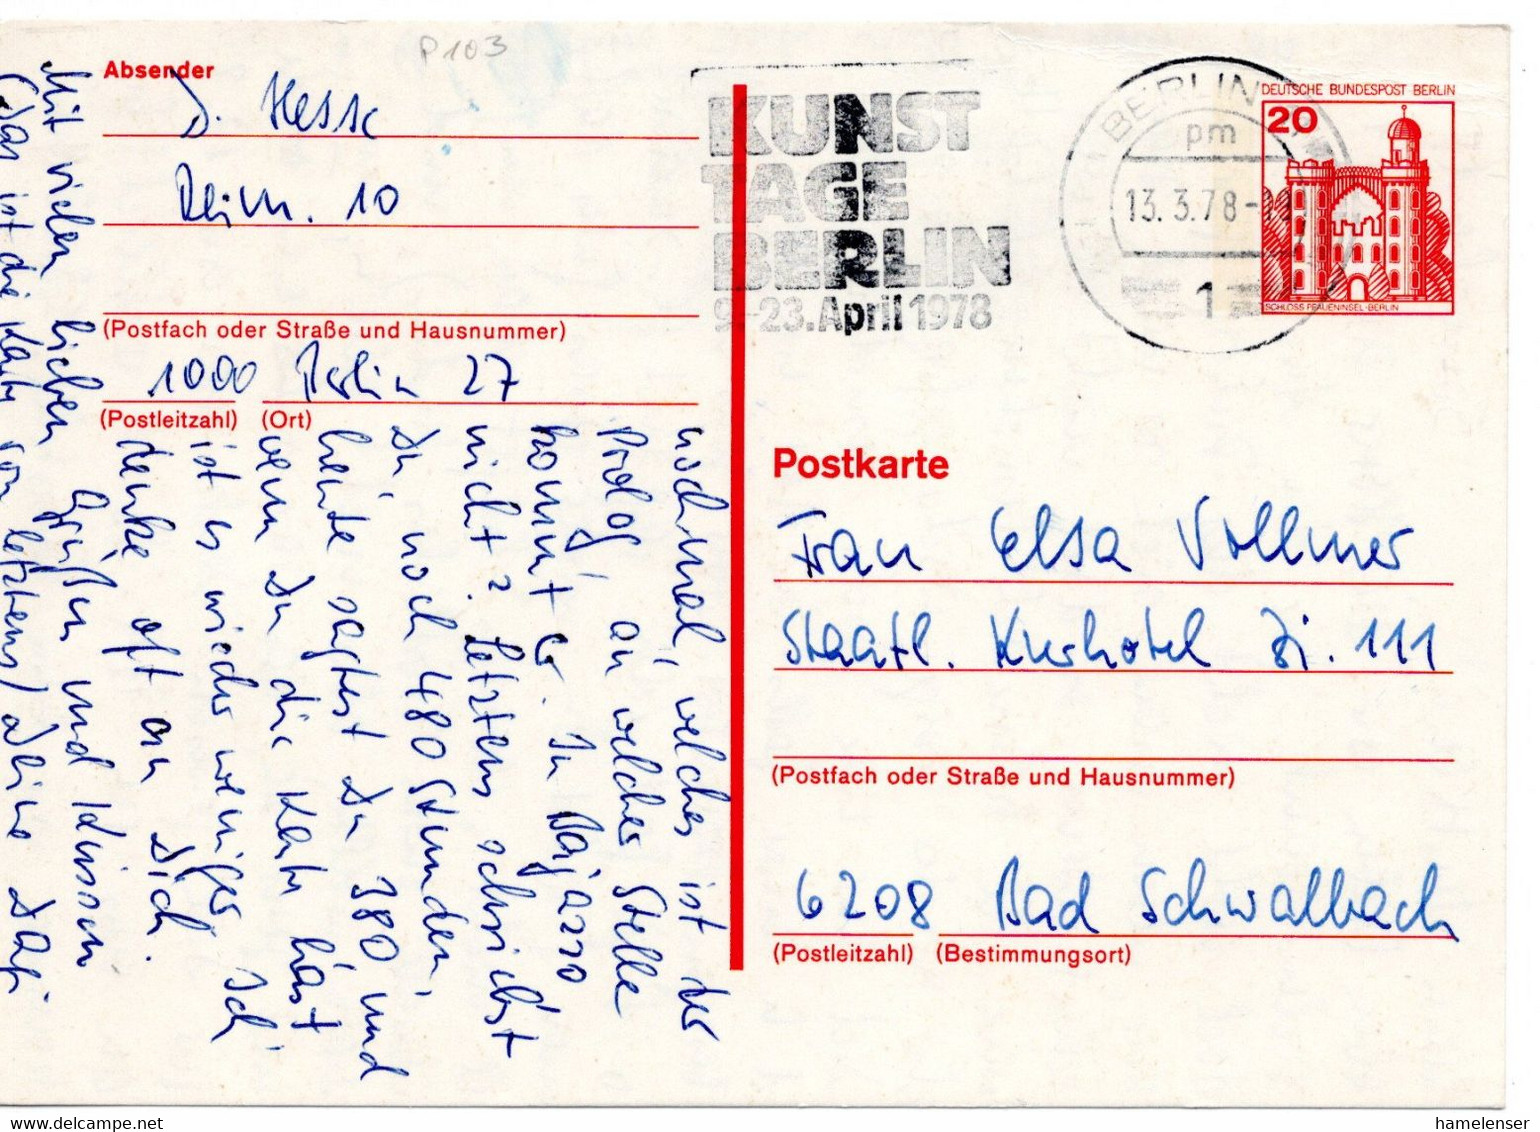 P103
Absender
D. Hesse
10
(Postfach oder Straße und Hausnummer)
1000 Berlin 27
(Postleitzahl) (Ort)
nochmal, welches ist der
Prolog, an welcher Stelle
kommt er. In Bajazzo
nicht? Letztens schriebst
Du noch 480 Stunden,
heute sagtest Du 380 und
wenn Du die Karte hast
ist es wieder weniger. Ich
denke oft an Dich.
Mit vielen lieben Grüßen und Küssen
(das ist die Karte von letztens) Deine Dagi
KUNST
TAGE
BERLIN
9.-23. April 1978
1 BERLIN
pm
13.3.78-
1
DEUTSCHE BUNDESPOST BERLIN
20
SCHLOSS PFAUENINSEL·BERLIN
Postkarte
Frau Elsa Vollmer
Staatl. Kurhotel Zi. 111
(Postfach oder Straße und Hausnummer)
6208 Bad Schwalbach
(Postleitzahl) (Bestimmungsort)
hamelenser